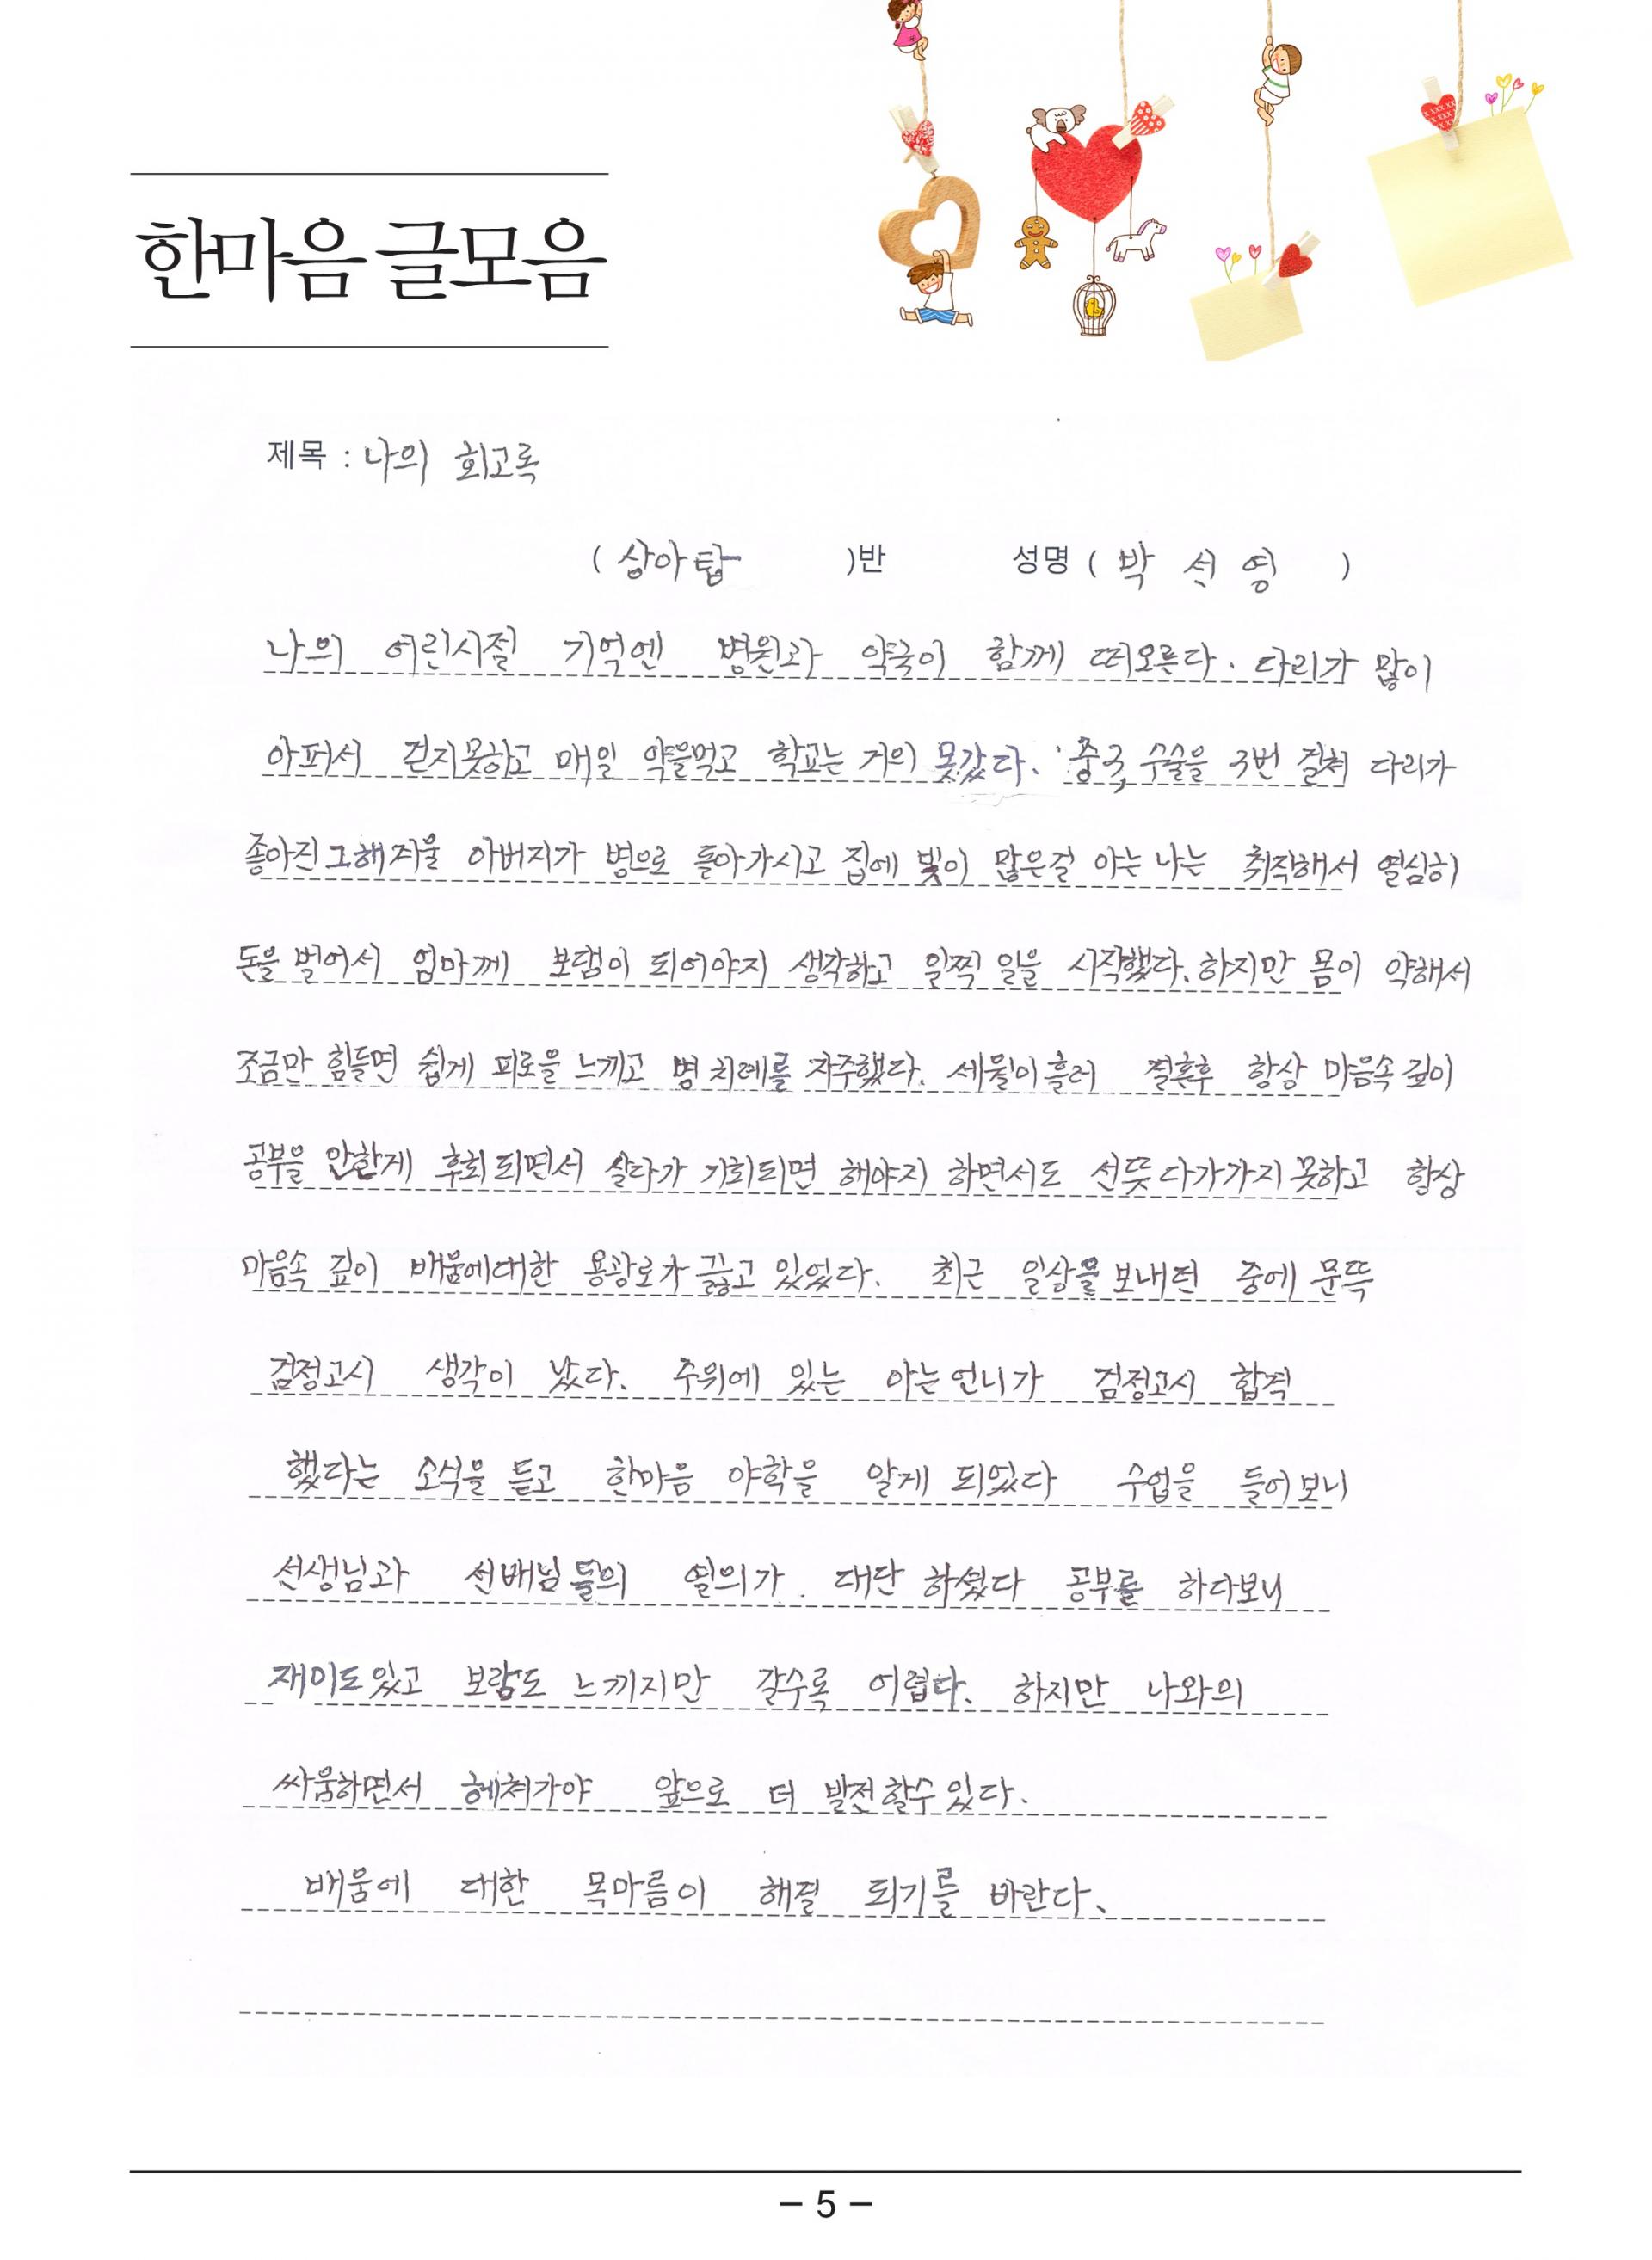 한마음 글모음
제목 : 나의 회고록
( 상아탑 )반 성명 ( 박 선 영 )
나의 어린시절 기억엔 병원과 약국이 함께 떠오른다. 다리가 많이
아퍼서 걷지못하고 매일 약을먹고 학교는 거의 못갔다. 중3, 수술을 3번 걸쳐 다리가
좋아진 그해겨울 아버지가 병으로 돌아가시고 집에 빚이 많은걸 아는 나는 취직해서 열심히
돈을 벌어서 엄마께 보탬이 되어야지 생각하고 일찍 일을 시작했다. 하지만 몸이 약해서
조금만 힘들면 쉽게 피로을 느끼고 병 치례를 자주했다. 세월이 흘러 결혼후 항상 마음속 깊이
공부을 안한게 후회 되면서 살다가 기회되면 해야지 하면서도 선뜻 다가가지 못하고 항상
마음속 깊이 배움에대한 용광로가 끓고 있었다. 최근 일상을 보내던 중에 문뜩
검정고시 생각이 났다. 주위에 있는 아는 언니가 검정고시 합격
했다는 소식을 듣고 한마음 야학을 알게 되었다 수업을 들어 보니
선생님과 선배님들의 열의가 대단 하셨다 공부를 하다보니
재미도 있고 보람도 느끼지만 갈수록 어렵다. 하지만 나와의
싸움하면서 헤쳐가야 앞으로 더 발전할수 있다.
배움에 대한 목마름이 해결 되기를 바란다.
- 5 -